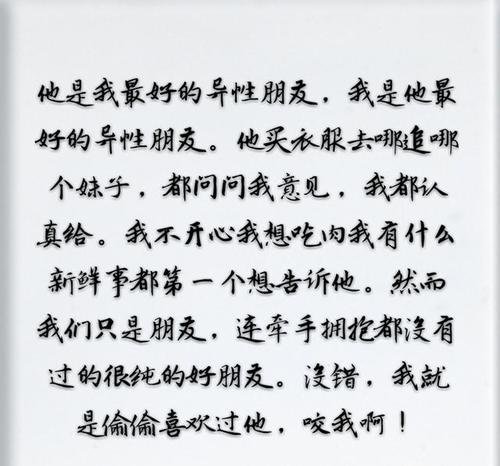 他是我最好的异性朋友，我是他最
好的异性朋友。他买衣服去哪追哪
个妹子，都问问我意见，我都认
真给。我不开心我想吃肉我有什么
新鲜事都第一个想告诉他。然而
我们只是朋友，连牵手拥抱都没有
过的很纯的好朋友。没错，我就
是偷偷喜欢过他，咬我啊！